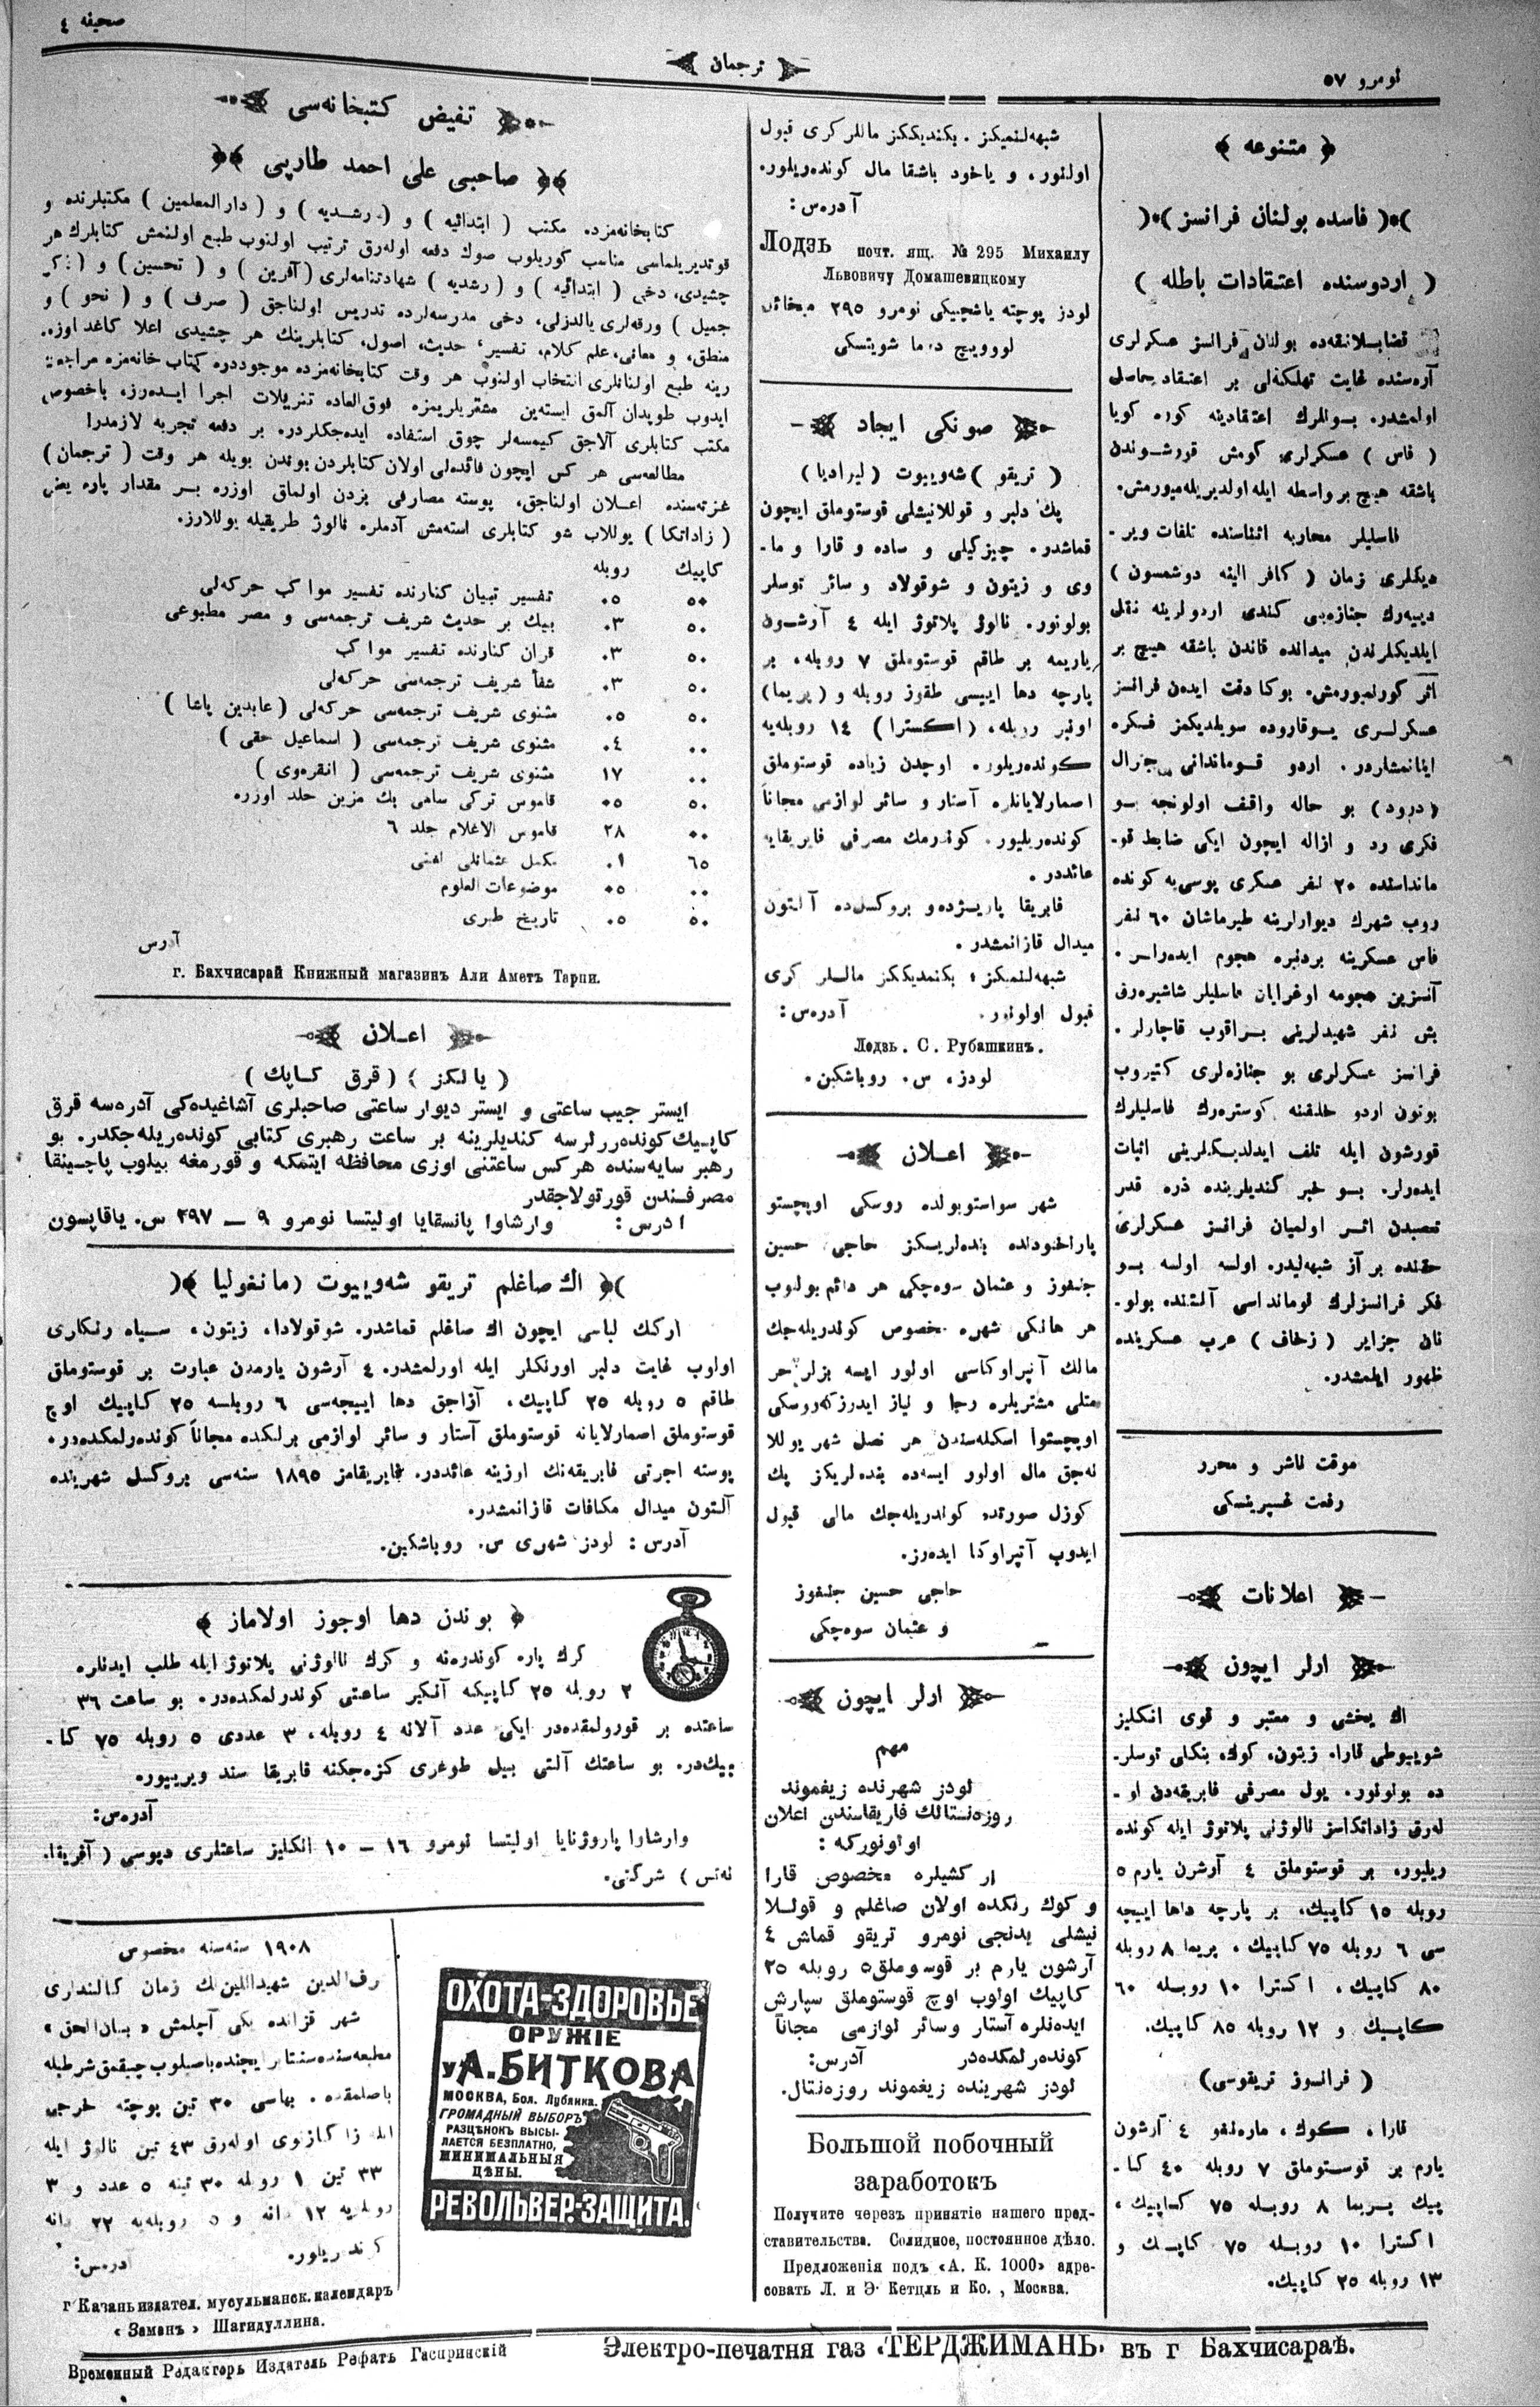 نومرو ٥٧
ترجمان
صحيفه ٤
متنوعه
فاسده بولنان فرانسز
( اردوسنده اعتقادات باطله )
قضابلانقه‌ده بولنان فرانسز عسكرلرى
آره‌سنده غايت تهلكه‌لى بر اعتقاد حاصل
اولمشدر. بونلرك اعتقادينه كوره كويا
( فاس ) عسكرلرى كومش قورشوندن
باشقه هيچ بر واسطه ايله اولديريله‌ميورمش.
فاسليلر محاربه اثناسنده تلفات وير-
ديكلرى زمان ( كافر الينه دوشمسون )
دييه‌رك جنازه‌يى كندى اردولرينه نقل
ايلديكلرندن ميدانده قاندن باشقه هيچ بر
اثر كورلميورمش. بوكا دقت ايدن فرانسز
عسكرلرى يوقاروده سويلديكمز فكره
اينانمشلردر. اردو قوماندانى جنرال
(درود) بو حاله واقف اولونجه بو
فكرى رد و ازاله ايچون ايكى ضابط قو-
مانداسنده ٢٠ نفر عسكرى پوسى‌يه كونده
روب شهرك ديوارلرينه طيرماشان ٦٠ نفر
فاس عسكرينه بردنبره هجوم ايدەرلر.
آنسزين هجومه اوغرايان فاسليلر شاشيره‌رق
بش نفر شهيدلرينى براقوب قاچارلر.
فرانسز عسكرلرى بو جنازه‌لرى كتيروب
بوتون اردو خلقنه كوستره‌رك فاسليلرك
قورشون ايله تلف ايدلديكلرينى اثبات
ايدەرلر. بو خبر كنديلرينده ذره قدر
تعصبدن اثر اولميان فرانسز عسكرلرى
حقنده بر آز شبهه‌ليدر. اولسه اولسه بو
فكر فرانسزلرك قومانداسى آلتنده بولو-
نان جزاير ( زخاف ) عرب عسكرينده
ظهور ايلمشدر.
موقت ناشر و محرر
رفعت غسپرينسكى
اعلانات
ارلر ايچون
اك يخشى و معتبر و قوى انكليز
شويبوطى قارا، زيتون، كوك، بنكلى توسلر-
ده بولونور. يول مصرفى فابريقه‌دن او-
له‌رق زاداتكاسز نالوژنى پلاتوژ ايله كونده
ريليور. بر قوستوملق ٤ آرشون يارم ٥
روبله ١٥ كاپيك، بر پارچه داها اييجه
سى ٦ روبله ٧٥ كاپيك، پريما ٨ روبله
٨٠ كاپيك، اكسترا ١٠ روبله ٦٠
كاپيك و ١٢ روبله ٨٥ كاپيك.
( فرانسوز تريقوسى )
قارا، كوك، مارەنغو ٤ آرشون
يارم بر قوستوملق ٧ روبله ٤٠ كا-
پيك پريما ٨ روبله ٧٥ كاپيك،
اكسترا ١٠ روبله ٧٥ كاپيك و
١٣ روبله ٢٥ كاپيك.
شبهه‌لنميكز. بكنديككز ماللر كرى قبول
اولنور، و ياخود باشقا مال كوندەريلور.
آدرەس:
Лодзь почт. ящ. № 295 Михаилу
Львовичу Домашевицкому
لودز پوچته ياشچيكى نومرو ٢٩٥ ميخائل
لوويچ دماشويتسكى
صونكى ايجاد
( تريقو ) شەوييوت ( ليراديا )
پك دلبر و قوللانيشلى قوستوملق ايچون
قماشدر. چيزكيلى و ساده و قارا و ما-
وى و زيتون و شوقولاد و سائر توسلر
بولونور. نالوژ پلاتوژ ايله ٤ آرشون
ياريمه بر طاقم قوستوملق ٧ روبله، بر
پارچه دها اييسى طقوز روبله و (پريما)
اونبر روبله، (اكسترا) ١٤ روبله‌يه
كوندەريلور. اوچدن زياده قوستوملق
اصمارلايانلره آستار و سائر لوازمى مجاناً
كوندەريليور. كوندرمك مصرفى فابريقايه
عائددر.
فابريقا پاريژده‌و بروكسل‌ده آلتون
ميدال قازانمشدر.
شبهه‌لنميكز؛ بكنمديككز ماللر كرى
قبول اولونور. آدرەس:
Лодзь. С. Рубашкинъ.
لودز، س. روباشكين.
اعلان
شهر سواستوبولده روسكى اوپچستو
پاراخودلده بنده‌لريكز حاجى حسين
جنغوز و عثمان سوەچكى هر دائم بولنوب
هر هانكى شهره مخصوص كوندريله‌جك
مالك آتپراوكاسى اولور ايسه بزلر حر
متلى مشتريلره رجا و نياز ايدرزكه‌روسكى
اوپچستوا اسكله‌سندن هر نصل شهر يوللا
نه‌جق مال اولور ايسه‌ده بنده‌لريكز پك
كوزل صورتده كوندريله‌جك مالى قبول
ايدوب آتپراوكا ايدەرز.
حاجى حسين جنغوز
و عثمان سوەچكى
ارلر ايچون
مهم
لودز شهرنده زيغموند
روزەنستالك فاريقاسندن اعلان
اولونوركه:
ار كشيلره مخصوص قارا
و كوك رنكده اولان صاغلم و قوللا
نيشلى يدنجى نومرو تريقو قماش ٤
آرشون يارم بر قوسوملق٥ روبله ٢٥
كاپيك اولوب اوچ قوستوملق سپارش
ايدەنلره آستار وسائر لوازمى مجاناً
كوندەرلمكده‌در آدرەس:
لودز شهرينده زيغموند روزەنتال.
Большой побочный
заработокъ
Получите черезъ принятіе нашего пред-
ставительства. Солидное, постоянное дѣло.
Предложенія подъ «А. К. 1000» адре-
совать Л. и Э. Кетцль и Ко., Москва.
تفيض كتبخانه‌سى
صاحبى على احمد طارپى
كتابخانه‌مزده مكتب ( ابتدائيه ) و ( رشديه ) و ( دارالمعلمين ) مكتبلرنده و
قوتديريلماسى مناسب كوريلوب صوك دفعه اوله‌رق ترتيب اولنوب طبع اولنمش كتابلرك هر
چشيدى، دخى ( ابتدائيه ) و ( رشديه ) شهادتنامه‌لرى ( آفرين ) و ( تحسين ) و ( ذكر
جميل ) ورقه‌لرى يالدزلى، دخى مدرسه‌لرده تدريس اولناجق ( صرف ) و ( نحو ) و
منطق، و معانى، علم كلام، تفسير، حديث، اصول، كتابلرينك هر چشيدى اعلا كاغد اوزه-
رينه طبع اولنانلرى انتخاب اولنوب هر وقت كتابخانه‌مزده موجوددره كتاب خانه‌مزه مراجعت
ايدوب طوپدان آلمق ايسته‌ين مشتريلريمزه فوق‌العاده تنزيلات اجرا ايدەرز، باخصوص
مكتب كتابلرى آلاجق كيمسه‌لر چوق استفاده ايده‌جكلردر. بر دفعه تجربه لازمدر!
مطالعه‌سى هر كس ايچون فائده‌لى اولان كتابلردن بوندن بويله هر وقت ( ترجمان )
غزته‌سنده اعلان اولناجق، پوسته مصارفى بزدن اولماق اوزره بر مقدار پاره يعنى
( زاداتكا ) يوللاب شو كتابلرى استه‌مش آدملره نالوژ طريقيله يوللارز.
كاپيك روبله
٥٠ ٠٥ تفسير تبيان كنارنده تفسير مواكب حركه‌لى
٥٠ ٠٣ بيك بر حديث شريف ترجمه‌سى و مصر مطبوعى
٥٠ ٠٣ قران كنارنده تفسير مواكب
٥٠ ٠٣ شفأ شريف ترجمه‌سى حركه‌لى
٥٠ ٠٥ مثنوى شريف ترجمه‌سى حركه‌لى ( عابدين پاشا )
٠٠ ٠٤ مثنوى شريف ترجمه‌سى ( اسماعيل حقى )
٠٠ ١٧ مثنوى شريف ترجمه‌سى ( انقره‌وى )
٥٠ ٠٥ قاموس تركى سامى بك مزين جلد اوزره
٠٠ ٢٨ قاموس الاعلام جلد ٦
٦٥ ٠١ مكمل عثمانلى لغتى
٠٠ ٠٥ موضوعات العلوم
٥٠ ٠٥ تاريخ طبرى
آدرس
г. Бахчисарай Книжный магазинъ Али Аметъ Тарпи.
اعلان
( يالكز ) ( قرق كاپك )
ايستر جيب ساعتى و ايستر ديوار ساعتى صاحبلرى آشاغيده‌كى آدرەسه قرق
كاپيك كوندەررلرسه كنديلرينه بر ساعت رهبرى كتابى كوندەريله‌جكدر. بو
رهبر سايه‌سنده هركس ساعتنى اوزى محافظه ايتمكه و قورمغه بيلوب پاچينقا
مصرفندن قورتولاجقدر
ادرس: وارشاوا پانسقايا اوليتسا نومرو ٩ — ٣٩٧ س. ياقاپسون
اك صاغلم تريقو شەوييوت (مانغوليا)
اركك لباسى ايچون اك صاغلم قماشدر. شوقولادا، زيتون، سياه رنكارى
اولوب غايت دلبر اورنكلر ايله اورلمشدر. ٤ آرشون يارمدن عبارت بر قوستوملق
طاقم ٥ روبله ٢٥ كاپيك، آزاجق دها اييجه‌سى ٦ روبلسه ٢٥ كاپيك اوچ
قوستوملق اصمارلايانه قوستوملق آستار و سائر لوازمى برلكده مجاناً كوندەرلمكده‌در.
پوسته اجرتى فابريقه‌نك اوزينه عائددر. فابريقامز ١٨٩٥ سنه‌سى بروكسل شهرينده
آلتون ميدال مكافات قازانمشدر.
آدرس: لودز شهرى س. روباشكين.
بوندن دها اوجوز اولاماز
كرك پاره كوندرەنه و كرك نالوژنى پلاتوژ ايله طلب ايدنلره
٢ روبله ٢٥ كاپيكه آنكير ساعتى كوندرلمكده‌در. بو ساعت ٣٦
ساعتده بر قورولمقده‌در ايكى عدد آلانه ٤ روبله، ٣ عددى ٥ روبله ٧٥ كا-
پيك‌در. بو ساعتك آلتى ييل طوغرى كزه‌جكنه فابريقا سند ويرييور.
آدرەس:
وارشاوا پاروژنايا اوليتسا نومرو ١٦ — ١٠ انكليز ساعتلرى دپوسى ( آفريقا.
نەتس ) شركتى.
١٩٠٨ سنه‌سنه مخصوص
رف‌الدين شهيداللين‌ك زمان كالندارى
شهر قزانده يكى آچلمش « بيان‌الحق »
مطبعه‌سنده سنتابر ايچنده باصيلوب چيقمق شرطيله
باصلمقده. بهاسى ٣٠ تين پوچته خرجى
ايله زاكازنوى اوله‌رق ٤٣ تين نالوژ ايله
٣٣ تين ١ روبله ٣٠ تينه ٥ عدد و ٣
روبله‌يه ١٢ دانه و ٥ روبله‌يه ٢٢ دانه
كوندريلور. آدرەس:
г Казань издател. мусульманск. календарь
«Заманъ» Шагидуллина.
ОХОТА-ЗДОРОВЬЕ
ОРУЖІЕ
у А. БИТКОВА
МОСКВА, Бол. Лубянка.
ГРОМАДНЫЙ ВЫБОРЪ
РАЗЦѢНОК ВЫСЫ-
ЛАЕТСЯ БЕЗПЛАТНО,
МИНИМАЛЬНЫЯ
ЦѢНЫ.
РЕВОЛЬВЕР-ЗАЩИТА.
Временный Редакторъ Издатель Рефатъ Гаспринскій
Электро-печатня газ «ТЕРДЖИМАНЬ» въ г Бахчисараѣ.